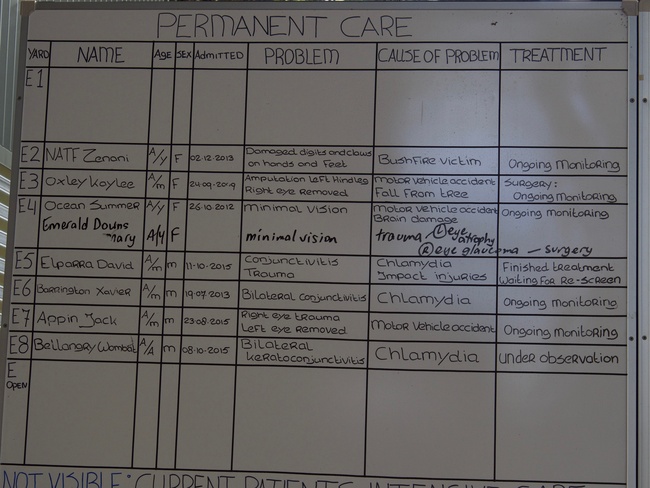 PERMANENT CARE
YARD NAME AGE SEX ADMITTED PROBLEM CAUSE OF PROBLEM TREATMENT
E1
E2 NATF Zenani A/y F 02·12·2013 Damaged digits and claws on hands and feet Bushfire victim Ongoing Monitoring
E3 Oxley Kaylee A/m F 24·09·2014 Amputation Left Hindleg Right eye Removed Motor vehicle accident Fall from tree Surgery: Ongoing Monitoring
E4 Ocean Summer A/y F 26·10·2012 Minimal Vision Motor vehicle accident Brain damage Ongoing monitoring
Emerald Downs Mary A/y F minimal vision trauma (L) eye atrophy (R) eye glaucoma – surgery
E5 Elparra David A/m m 11·10·2015 Conjunctivitis Trauma Chlamydia Impact injuries Finished treatment Waiting for Re-screen
E6 Barrington Xavier A/m m 19·07·2013 Bilateral conjunctivitis Chlamydia Ongoing monitoring
E7 Appin Jack A/m m 23·08·2015 Right eye trauma Left eye removed Motor vehicle accident Ongoing Monitoring
E8 Bellangry Wombat A/A m 08·10·2015 Bilateral keratoconjunctivitis Chlamydia under observation
E OPEN
NOT VISIBLE: CURRENT PATIENTS INTENSIVE CARE